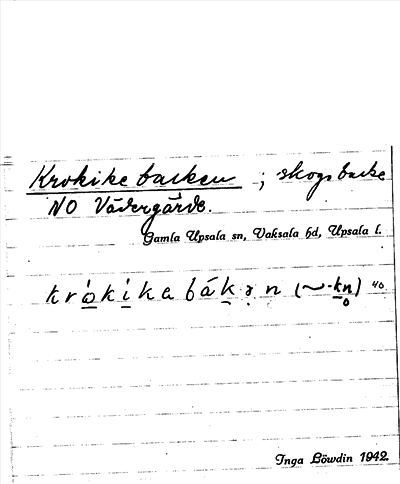 Krokikebacken ; skogsbacke
NO Vådergärde.
Gamla Upsala sn, Vaksala hd, Upsala l.
krò̱ki̱kabákən (~-kn̥) 40
Inga Löwdin 1942.